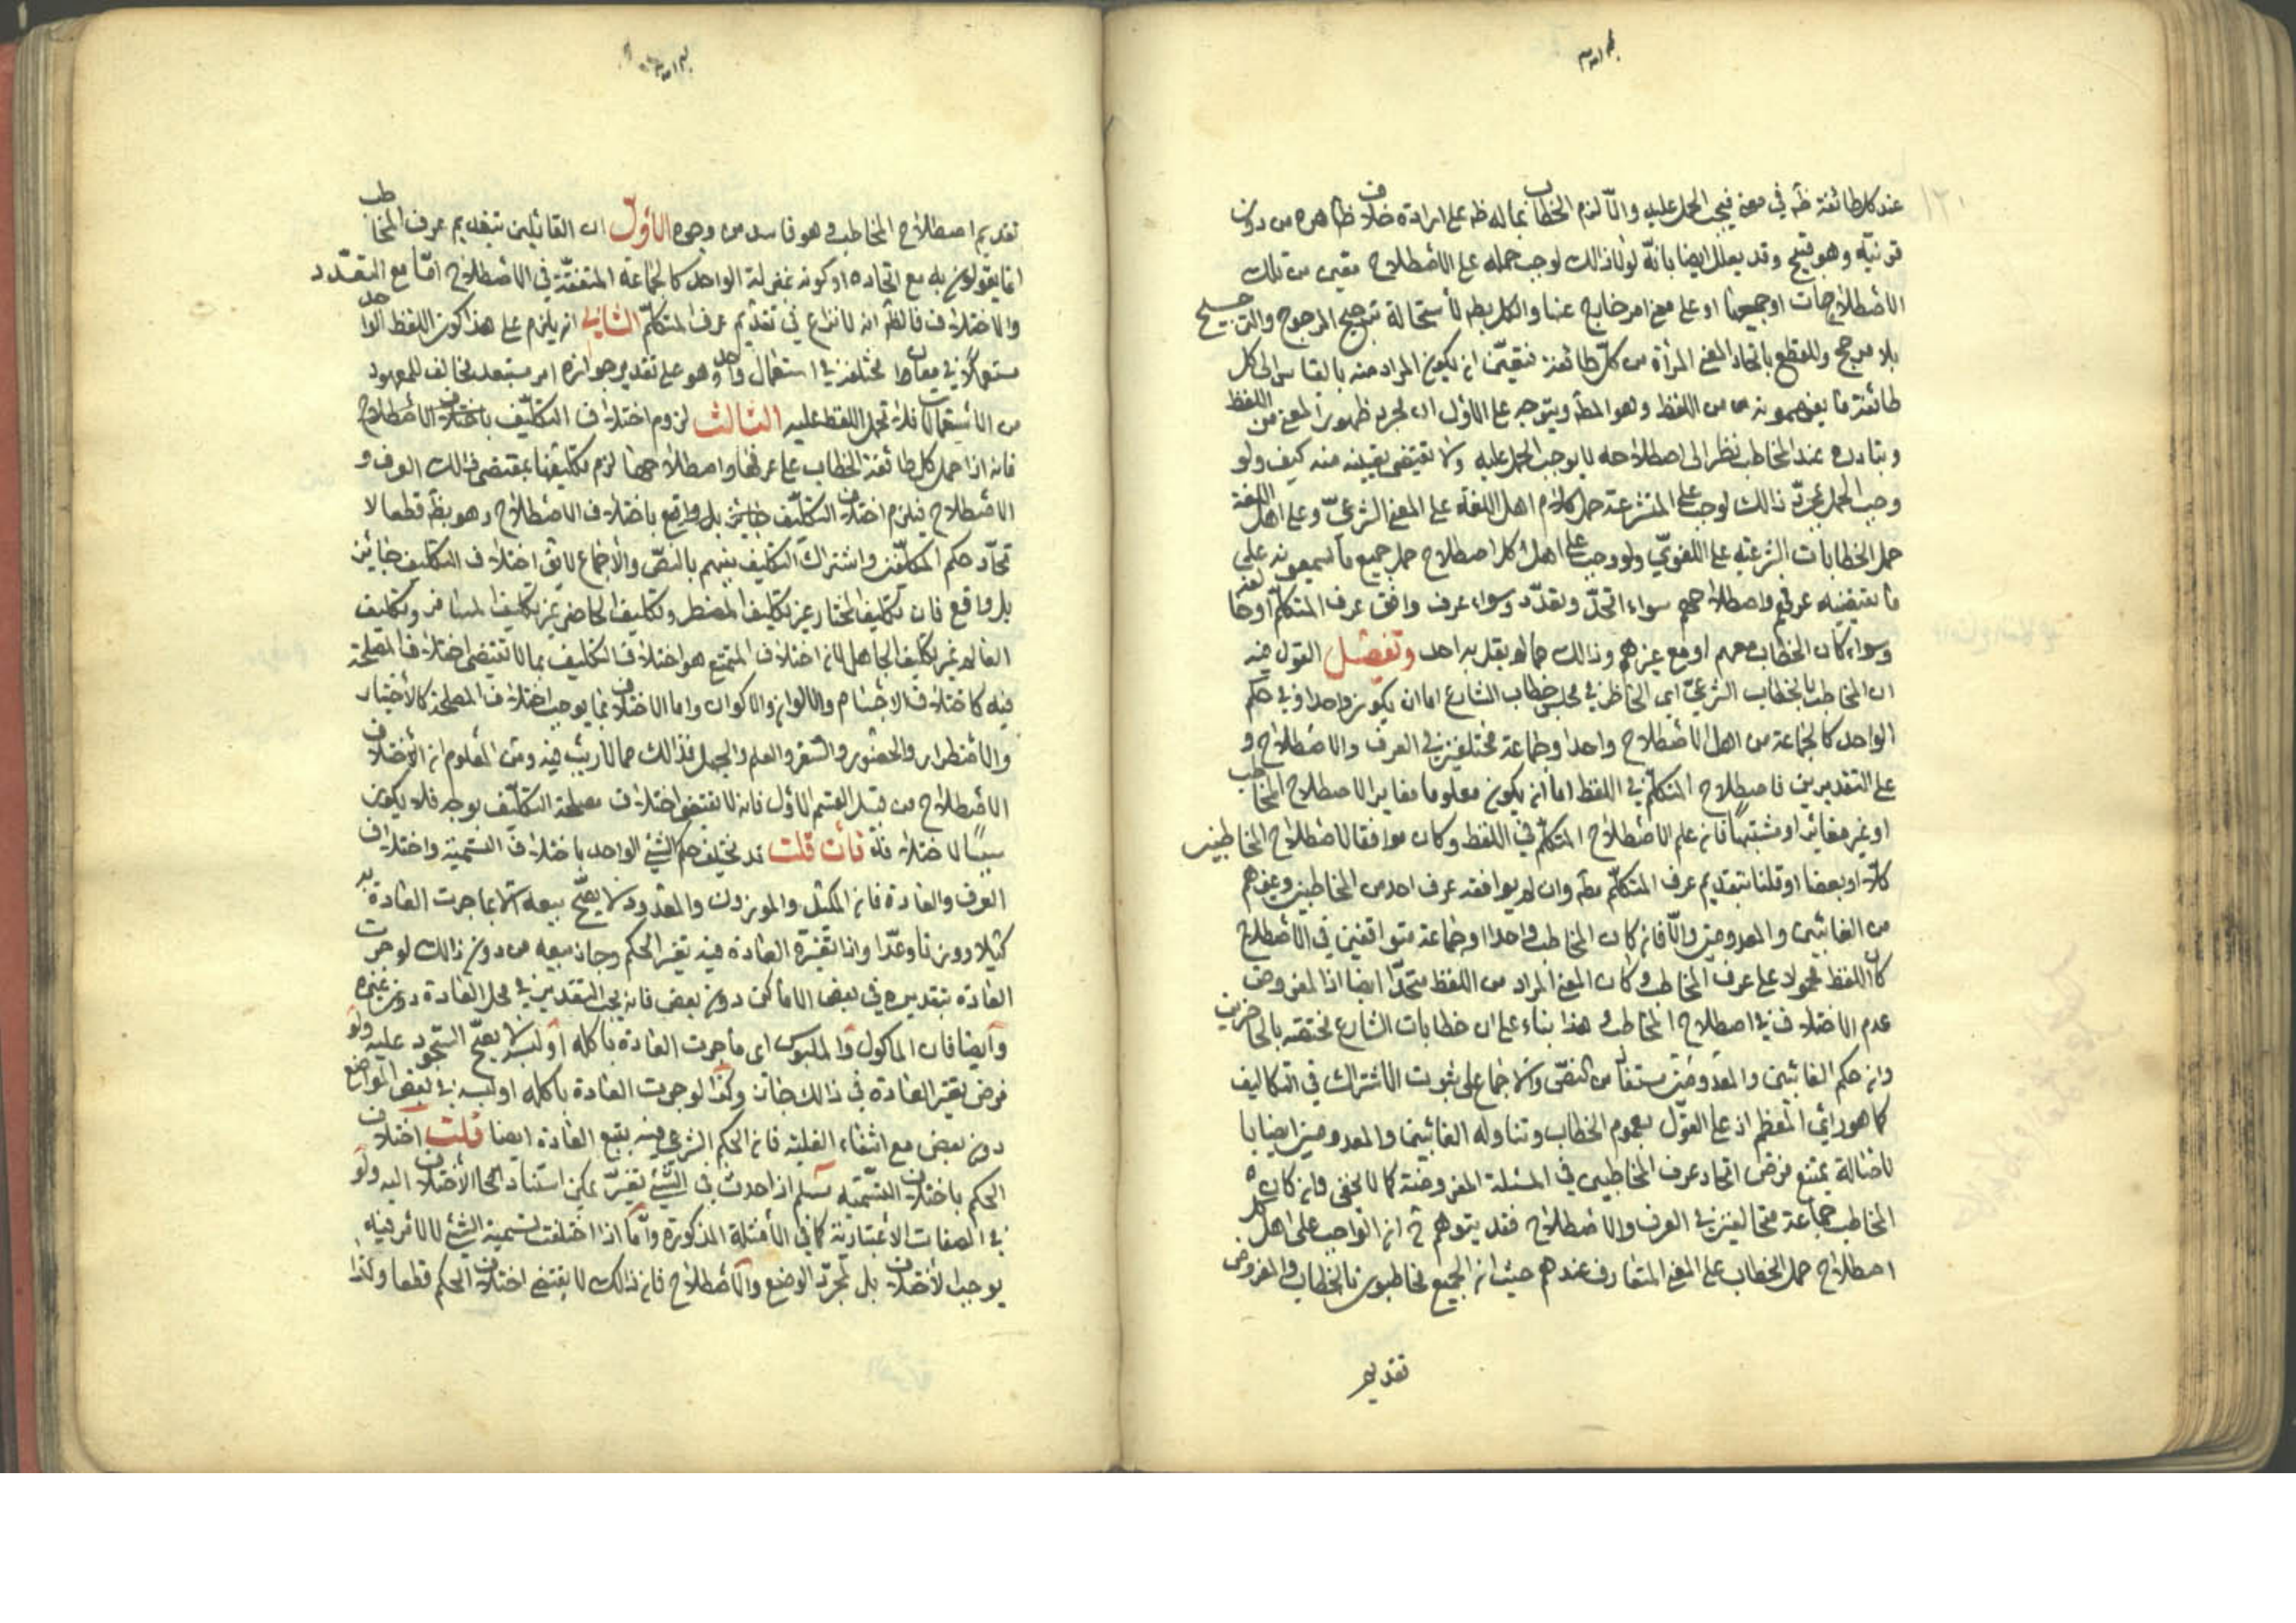 عند كل طائفة ظ في معنى فيجب الحمل عليه والا لزم الخطاب بماله ظ على ارادة خلاف ظاهره من دون
قرينة وهو قبيح وقد يعلل ايضا بانه لولا ذلك لوجب حمله على الاصطلاح معين من تلك
الاصطلاحات او جميعها او على معنى اخر خارج عنها والكل بط لاستحالة ترجيح المرجوح والترجيح
بلا مرجح والقطع باتحاد المعنى المراد من كل طائفة فتعين ان يكون المراد منه بالقياس الى كل
طائفة ما يفهمونه من اللفظ وهو المط ويتوجه على الاول ان مجرد ظهور المعنى من اللفظ
وتبادره عند المخاطب نظرا الى اصطلاحه لا يوجب الحمل عليه ولا تقتضى تعيينه منه كيف ولو
وجب الحمل بمجرد ذلك لوجب على المتشرعة حمل كلام اهل اللغة على المعنى الشرعي وعلى اهل اللغة
حمل الخطابات الشرعية على اللغوي ولوجب على اهل كل اصطلاح حمل جميع ما يسمعونه على
ما يقتضيه عرفهم واصطلاحهم سواء اتحد وتعدد وسواء عرف وافق عرف المتكلم او خالفه
وسواء كان الخطاب معهم او مع غيرهم وذلك مما لم يقل به احد وتفصيل القول فيه
ان المخاطب بالخطاب الشرعي اى الحاضر في مجلس خطاب الشارع اما ان يكون واحدا وفي حكم
الواحد كالجماعة من اهل الاصطلاح واحدا وجماعة مختلفين في العرف والاصطلاح و
على التقديرين فاصطلاح المتكلم في اللفظ اما ان يكون معلوما مغايرا لاصطلاح المخاطب
او غير مغاير او مشتبها فان علم الاصطلاح المتكلم في اللفظ وكان موافقا لاصطلاح المخاطبين
كلا او بعضا او قلنا بتقديم عرف المتكلم مط وان لم يوافقه عرف احد من المخاطبين وغيرهم
من الغائبين والمعدومين والا فان كان المخاطب واحدا او جماعة متوافقين في الاصطلاح
كان اللفظ محمولا على عرف المخاطب وكان المعنى المراد من اللفظ متحدا ايضا اذا المفروض
عدم الاختلاف في اصطلاح المخاطب وهذا بناء على ان خطابات الشارع مختصة بالحاضرين
وان حكم الغائبين والمعدومين مستفاد من النص والاجماع على ثبوت الاشتراك في التكاليف
كما هو راي المعظم اذ على القول بعموم الخطاب وتناوله الغائبين والمعدومين ايضا با
لاصالة يمتنع فرض اتحاد عرف المخاطبين في المسئلة المفروضة كما لا يخفى وان كان
المخاطب جماعة متخالفين في العرف والاصطلاح فقد يتوهم ح ان الواجب على اهل كل
اصطلاح حمل الخطاب على المعنى المتعارف عندهم حيث ان الجميع مخاطبون بالخطاب والمفروض
تقديم
تقديم اصطلاح المخاطب وهو فاسد من وجوه الاول ان القائلين بتقديم عرف المخاطب
انما يقولون به مع اتحاده او كونه بمنزلة الواحد كالجماعة المتفقة في الاصطلاح اما مع التعدد
والاختلاف فالظ انه لا نزاع في تقديم عرف المتكلم الثاني انه يلزم على هذا كون اللفظ الواحد
مستعملا في معان مختلفة في استعمال واحد وهو على تقدير جوازه امر مستبعد مخالف للمعهود
من الاستعمالات فلا يحمل اللفظ عليه الثالث لزوم اختلاف التكليف باختلاف الاصطلاح
فانه اذا حمل كل طائفة الخطاب على عرفها واصطلاحها لزم تكليفها بمقتضى ذلك العرف و
الاصطلاح فيلزم اختلاف التكليف بل واقع باختلاف الاصطلاح وهو بط قطعا لا
تحاد حكم المكلفين واشتراك التكليف بينهم بالنص والاجماع لا يق اختلاف التكليف جائز
بل واقع فان تكليف المختار غير تكليف المضطر وتكليف الحاضر غير تكليف المسافر وتكليف
العالم غير تكليف الجاهل لان اختلاف الممتنع هو اختلاف التكليف بما لا يقتضى اختلاف المصلحة
فيه كاختلاف الاجسام والالوان والاكوان واما الاختلاف بما يوجب اختلاف المصلحة كالاختيار
والاضطرار والحضور والسفر والعلم والجهل فذلك مما لا ريب فيه ومن المعلوم ان الاختلاف
الاصطلاح من قبيل القسم الاول فانه لا يقتضى اختلاف مصلحة التكليف بوجه فلا يكون
سببا لاختلافه فان قلت قد يختلف حكم الشئ الواحد باختلاف التسمية واختلاف
العرف والعادة فان المكيل والموزون والمعدود لا يصح بيعه الا بما جرت العادة به
كيلا ووزنا وعدا واذا تغيرت العادة فيه تغير الحكم وجاز بيعه من دون ذلك لو جرت
العادة بتقديره في بعض الاماكن دون بعض فانه يجب التقدير في محل العادة دون غيره
وايضا فان الماكول والملبوس اى ما جرت العادة باكله او لبسه لا يصح السجود عليه ولو
فرض تغير العادة في ذلك جاز وكذا لو جرت العادة باكله او لبسه في بعض المواضع
دون بعض مع انتفاء الغلبة فان الحكم الشرعي فيه يتبع العادة ايضا قلت اختلاف
الحكم باختلاف التسمية مسلم اذا حدث في الشئ تغير يمكن استناد الاختلاف اليه ولو
في الصفات الاعتبارية كما في الامثلة المذكورة واما اذا اختلفت تسمية الشئ لا لامر فيه
يوجب الاختلاف بل لمجرد الوضع والاصطلاح فان ذلك لا يقتضى اختلاف الحكم قطعا ولذا